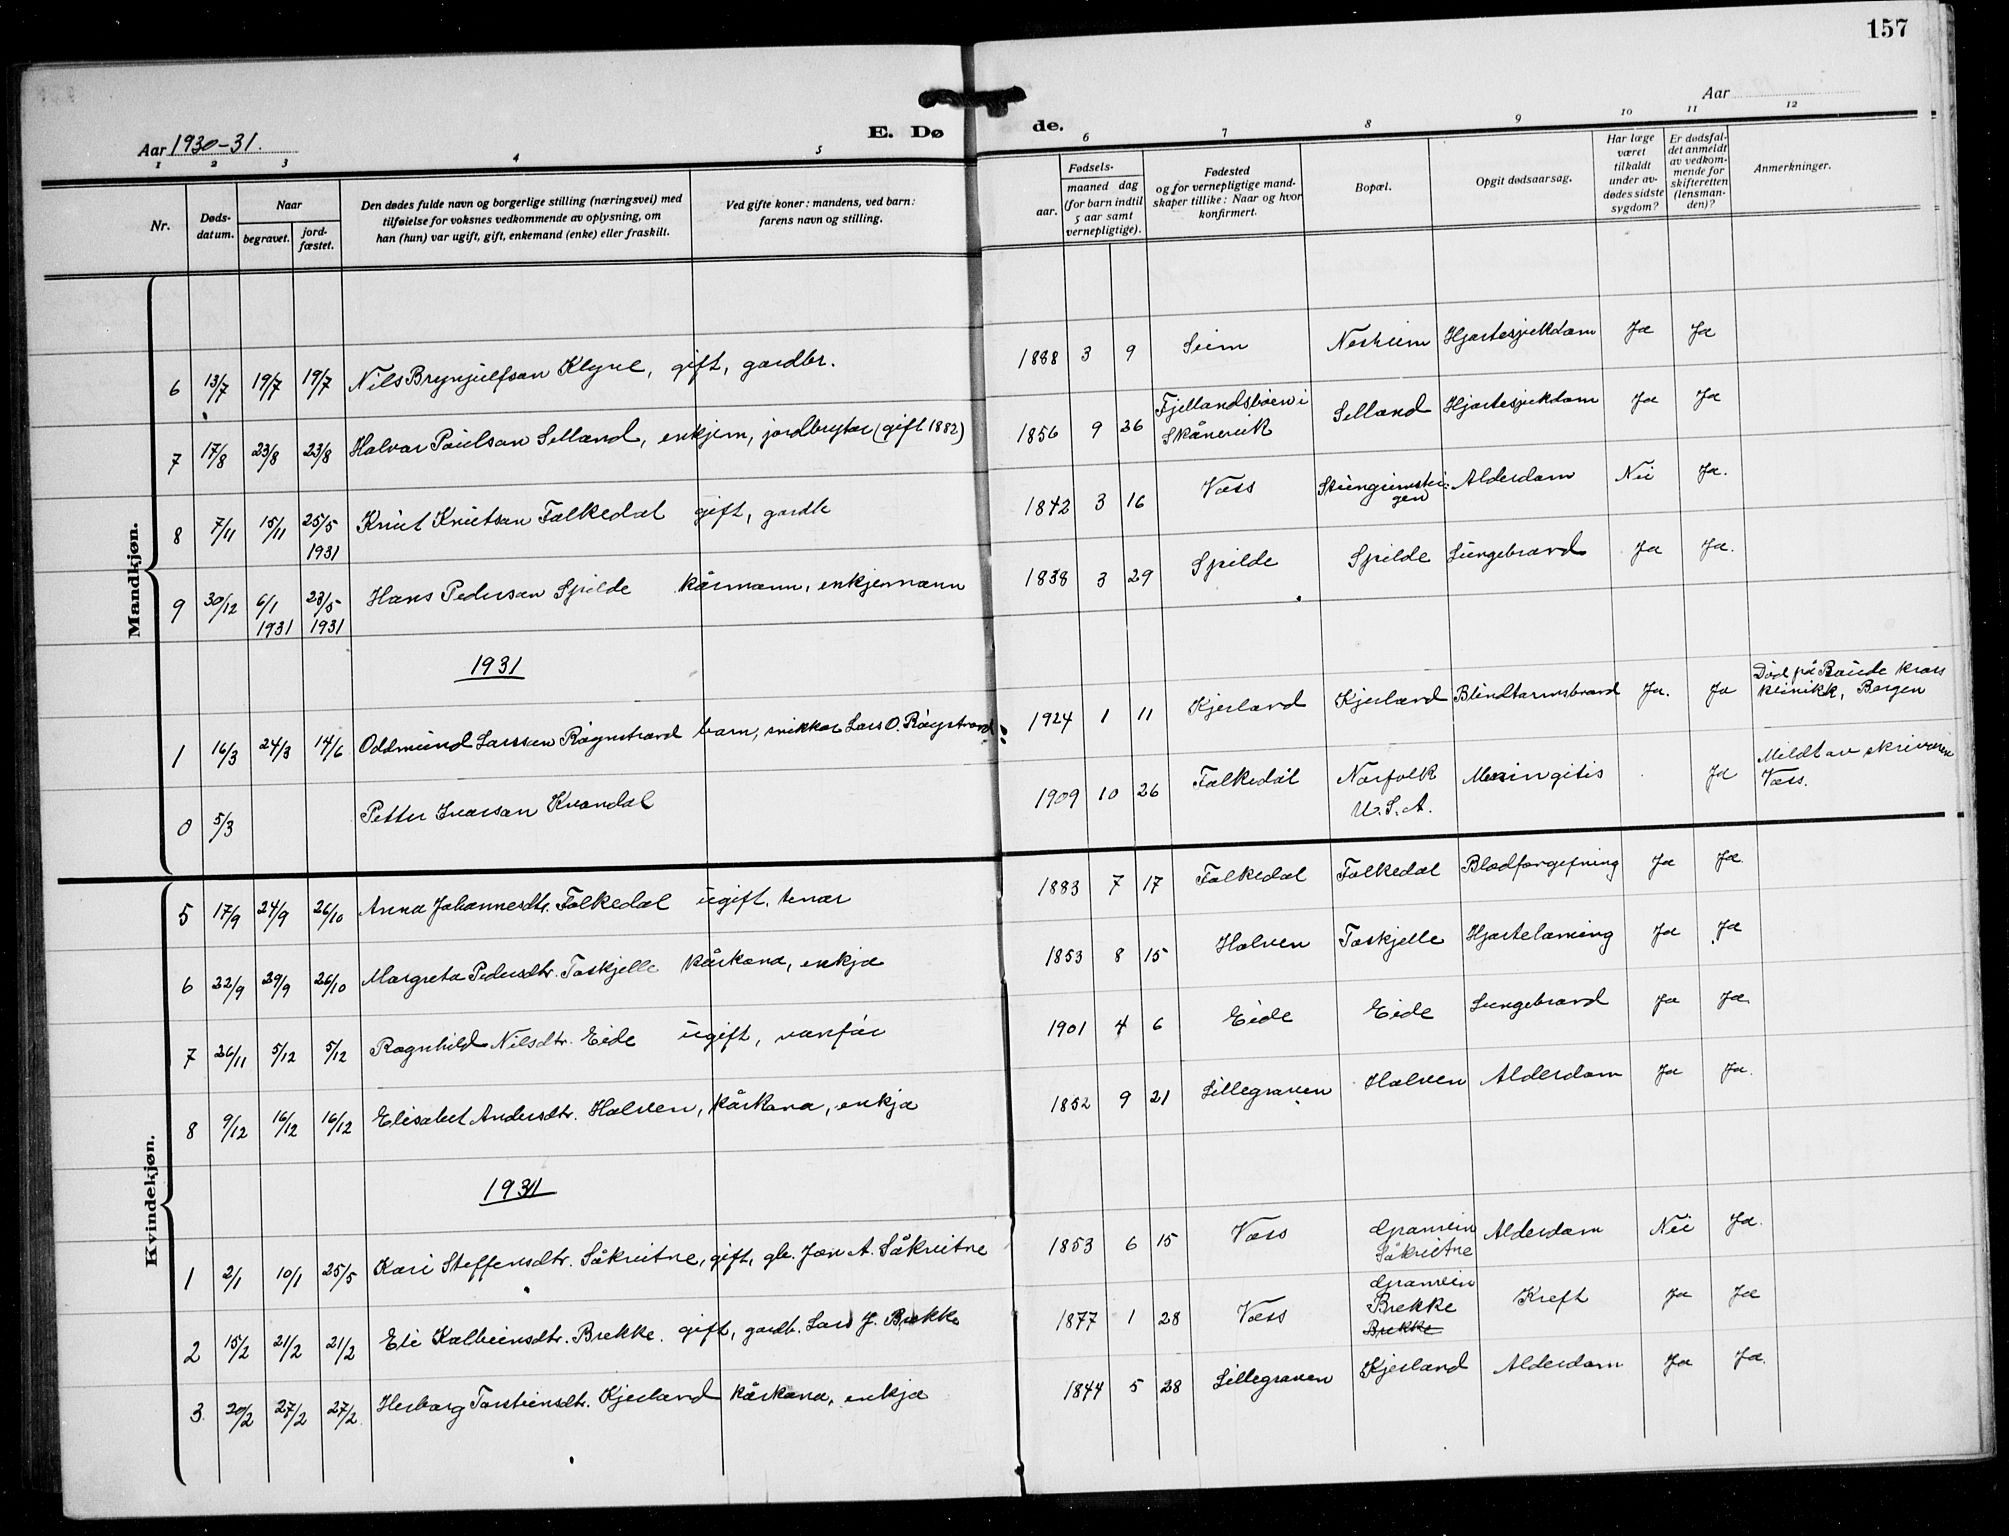 157
Aar 1930-31.
E. Dø de.
Aar
1 2 3 4 5 6 7 8 9 10 11 12
Nr.
Døds-
datum.
Naar
begravet.
jord-
fæstet.
Den dødes fulde navn og borgerlige stilling (næringsvei) med
tilføielse for voksnes vedkommende av oplysning, om
han (hun) var ugift, gift, enkemand (enke) eller fraskilt.
Ved gifte koner: mandens, ved barn:
farens navn og stilling.
Fødsels-
aar.
maaned dag
(for barn indtil
5 aar samt
vernepligtige).
Fødested
og for vernepligtige mand-
skaper tillike: Naar og hvor
konfirmert.
Bopæl.
Opgit dødsaarsag.
Har læge
været
tilkaldt
under av-
dødes sidste
sygdom?
Er dødsfal-
det anmeldt
av vedkom-
mende for
skifteretten
(lensman-
den)?
Anmerkninger.
Mandkjøn.
6 13/7 19/7 19/7 Nils Brynjulfson Klyve, gift, gardbr. 1888 3 9 Seim Neskeim Hjartesjukdom Ja Ja
7 17/8 23/8 23/8 Halvor Paulson Selland, enkjem, jordbrytar (gift 1882) 1856 9 26 Fjellandsbøen i
Skånevik Selland Hjartesjukdom Ja Ja
8 7/11 15/11 25/5
1931 Knut Knutson Falkedal gift, gardb 1842 3 16 Voss Alderdom Nei Ja.
9 30/12 6/1
1931 28/5
1931 Hans Pederson Spilde kårmann, enkjemann 1838 3 29 Spilde Spilde Lungebrand Ja Ja.
1931
1 16/3 24/3 14/6 Oddmund Larsson Røynstrand barn, snikkar Lars O. Røynstrand 1924 1 11 Kjerland Kjerland Blindtarmsbrand Ja. Ja Død på
klinikk, Bergen
0 5/3 Petter Ivarson Kvandal 1909 10 26 Falkedal Norfolk
U.S.A. Meningitis Ja Meldt av skrivaren
Voss.
Kvindekjøn.
5 17/9 24/9 26/10 Anna Johannesdtr. Falkedal ugift, tenar 1883 7 17 Falkedal Falkedal Blodforgiftning Ja Ja
6 22/9 29/9 26/10 Margreta Pedersdtr. Taskjelle kårkona, enkja 1853 8 15 Halven Taskjelle Hjartelaming Ja Ja
7 26/11 5/12 5/12 Ragnhild Nilsdtr. Eide ugift, vanfør 1901 4 6 Eide Eide Lungebrand Ja Ja
8 9/12 16/12 16/12 Elisabet Andersdtr. Halven, kårkona, enkja 1852 9 21 Lillegraven Halven Alderdom Ja Ja.
1931
1 2/1 10/1 25/5 Kari Steffensdtr. Såkvitne, gift, gb. Jon A. Såkvitne 1853 6 15 Voss Granvin
Såkvitne Alderdom Nei Ja.
2 15/2 21/2 21/2 Eli Kolbeinsdtr. Brekke. gift, gardb. Lars J. Brekke 1877 1 28 Voss Granvin
Brekke
Brekke Kreft Ja Ja
3. 20/2 27/2 27/2 Herborg Torsteinsdtr. Kjerland kårkona, enkja 1844 5 28 Lillegraven Kjerland Alderdom Ja Ja.